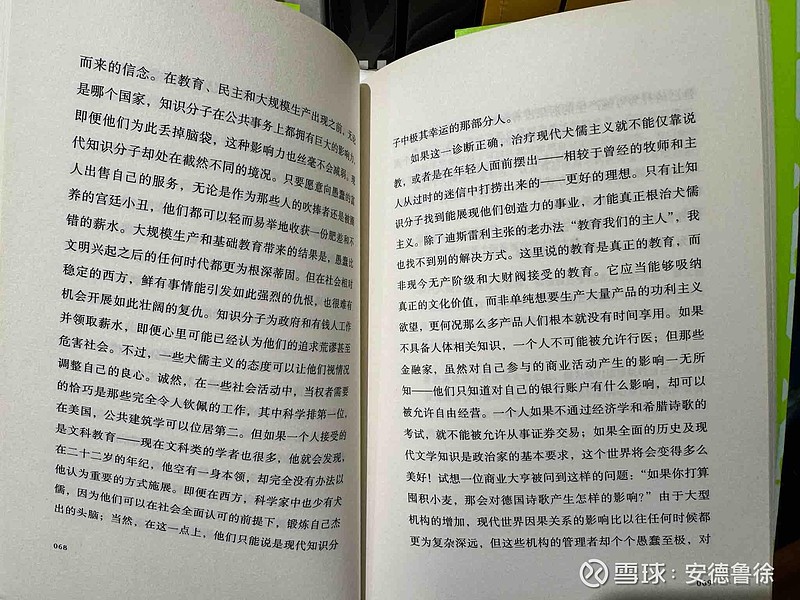 而来的信念。在教育、民主和大规模生产出现之前，无论
是哪个国家，知识分子在公共事务上都拥有巨大的影响力，
即便他们为此丢掉脑袋，这种影响力也丝毫不会减弱。现
代知识分子却处在截然不同的境况。只要愿意向愚蠢的富
人出售自己的服务，无论是作为那些人的吹捧者还是被豢
养的宫廷小丑，他们都可以轻而易举地收获一份肥差和不
错的薪水。大规模生产和基础教育带来的结果是，愚蠢比
文明兴起之后的任何时代都更为根深蒂固。但在社会相对
稳定的西方，鲜有事情能引发如此强烈的仇恨，也很难有
机会开展如此壮阔的复仇。知识分子为政府和有钱人工作
并领取薪水，即便心里可能已经认为他们的追求荒谬甚至
危害社会。不过，一些犬儒主义的态度可以让他们视情况
调整自己的良心。诚然，在一些社会活动中，当权者需要
的恰巧是那些完全令人钦佩的工作，其中科学排第一位，
在美国，公共建筑学可以位居第二。但如果一个人接受的
是文科教育——现在文科类的学者也很多，他就会发现，
在二十二岁的年纪，他空有一身本领，却完全没有办法以
他认为重要的方式施展。即便在西方，科学家中也少有犬
儒，因为他们可以在社会全面认可的前提下，锻炼自己杰
出的头脑；当然，在这一点上，他们只能说是现代知识分
068
子中极其幸运的那部分人。
如果这一诊断正确，治疗现代犬儒主义就不能仅靠说
教，或者是在年轻人面前摆出——相较于曾经的牧师和主
人从过时的迷信中打捞出来的——更好的理想。只有让知
识分子找到能展现他们创造力的事业，才能真正根治犬儒
主义。除了迪斯雷利主张的老办法“教育我们的主人”，我
也找不到别的解决方式。这里说的教育是真正的教育，而
非现今无产阶级和大财阀接受的教育。它应当能够吸纳
真正的文化价值，而非单纯想要生产大量产品的功利主义
欲望，更何况那么多产品人们根本就没有时间享用。如果
不具备人体相关知识，一个人不可能被允许行医；但那些
金融家，虽然对自己参与的商业活动产生的影响一无所
知——他们只知道对自己的银行账户有什么影响，却可以
被允许自由经营。一个人如果不通过经济学和希腊诗歌的
考试，就不能被允许从事证券交易；如果全面的历史及现
代文学知识是政治家的基本要求，这个世界将会变得多么
美好！试想一位商业大亨被问到这样的问题：“如果你打算
囤积小麦，那会对德国诗歌产生怎样的影响？”由于大型
机构的增加，现代世界因果关系的影响比以往任何时候都
更为复杂深远，但这些机构的管理者却个个愚蠢至极，对
雪球：安德鲁徐